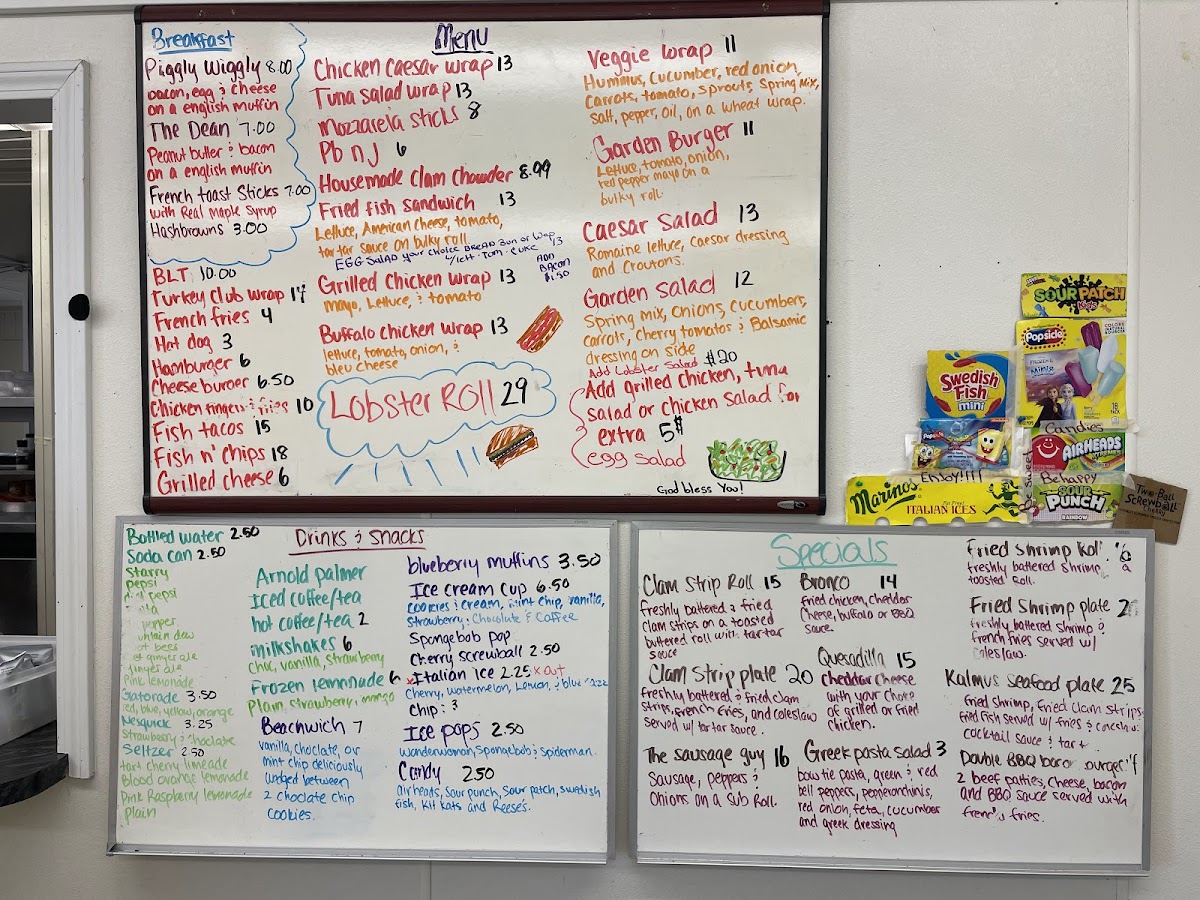 Breakfast
Piggly Wiggly 8.00
bacon, egg & cheese
on a english muffin
The Dean 7.00
Peanut butter & bacon
on a english muffin
French toast Sticks 7.00
with Real Maple Syrup
Hashbrowns 3.00
BLT 10.00
Turkey Club wrap
French fries 4
Hot dog 3
Hamburger 6
Cheeseburger 6.50
Chicken fingers & fries 10
Fish tacos 15
Fish n' chips 18
Grilled cheese 6
Menu
Chicken Caesar wrap 13
Tuna salad wrap 13
Mozzarela sticks 8
Pb n J 6
Housemade Clam Chowder 8.99
Fried fish sandwich 13
Lettuce, American Cheese, tomato,
tartar sauce on bulky roll
EGG SALAD your choice BREAD Bun or Wrap 13
w/lett. Tom. Cuke
ADD
BACON
$1.50
Grilled Chicken Wrap 13
mayo, Lettuce, & tomato
Buffalo chicken wrap 13
lettuce, tomato, onion, &
bleu cheese
LOBSTER ROLL 29
Veggie wrap 11
Hummus, cucumber, red onion,
Carrots, tomato, sprouts, Spring Mix,
salt, pepper, oil, on a wheat wrap.
Garden Burger 11
Lettuce, tomato, onion,
red pepper mayo on a
bulky roll.
Caesar Salad 13
Romaine lettuce, Caesar dressing
and Croutons.
Garden Salad 12
Spring mix, onions, cucumbers,
carrots, Cherry tomatos & Balsamic
dressing on side
Add Lobster Salad $20
Add grilled chicken, tuna
salad or chicken salad for
extra 5$
egg salad
God bless You!
SOUR PATCH
Kids
Popsicle
Minis
Swedish
Fish
mini
Candies
AIRHEADS
XTREMES
Enjoy!!!!
Be sweet
Behappy
SOUR
PUNCH
RAINBOW
Marino's
ITALIAN ICES
Two-Ball
Screwball
Cherry
Drinks & Snacks
Bottled water 2.50
Soda can 2.50
Starry
pepsi
pepsi
pepper
ginger ale
Pink lemonade
Gatorade 3.50
red, blue, yellow, orange
Nesquick 3.25
Strawberry & choclate
Seltzer 2.50
tart cherry limeade
Blood orange lemonade
Pink Raspberry lemonade
plain
Arnold palmer
Iced coffee/tea
hot coffee/tea 2
milkshakes 6
choc, vanilla, strawberry
Frozen lemonade 6
Plain, strawberry, mango
Beachwich 7
vanilla, choclate, or
mint chip deliciously
wedged between
2 choclate chip
cookies.
blueberry muffins 3.50
Ice cream cup 6.50
cookies & cream, mint chip, vanilla,
strawberry, Chocolate & Coffee
Spongebob pop
Cherry screwball 2.50
Italian Ice 2.25 x out
Cherry, watermelon, Lemon, & blue
Chip: 3
Ice pops 2.50
wonderwoman, spongebob & spiderman.
Candy 2.50
airheads, sour punch, sour patch, swedish
fish, Kit Kats and Reese's.
Specials
Clam Strip Roll 15
freshly battered & fried
clam strips on a toasted
buttered roll with tartar
sauce
Clam Strip plate 20
freshly battered & fried clam
strips, french fries, and coleslaw
served w/ tartar sauce.
The sausage guy 16
Sausage, peppers &
Onions on a Sub Roll.
Bronco 14
fried chicken, cheddar
Cheese, buffalo or BBQ
sauce.
Quesadilla 15
cheddar cheese
with your choice
of grilled or fried
chicken.
Greek pasta salad 3
bowtie pasta, green & red
bell peppers, pepperonchinis,
red onion, feta, cucumber
and greek dressing
Fried Shrimp Roll
freshly battered shrimp
toasted Roll.
Fried Shrimp plate
freshly battered shrimp &
french fries served w/
coleslaw.
Kalmus Seafood plate 25
fried shrimp, fried clam strips,
fried fish served w/ fries &
cocktail sauce & tart
Double BBQ bacon burger
2 beef patties, cheese, bacon
and BBQ sauce served with
french fries.